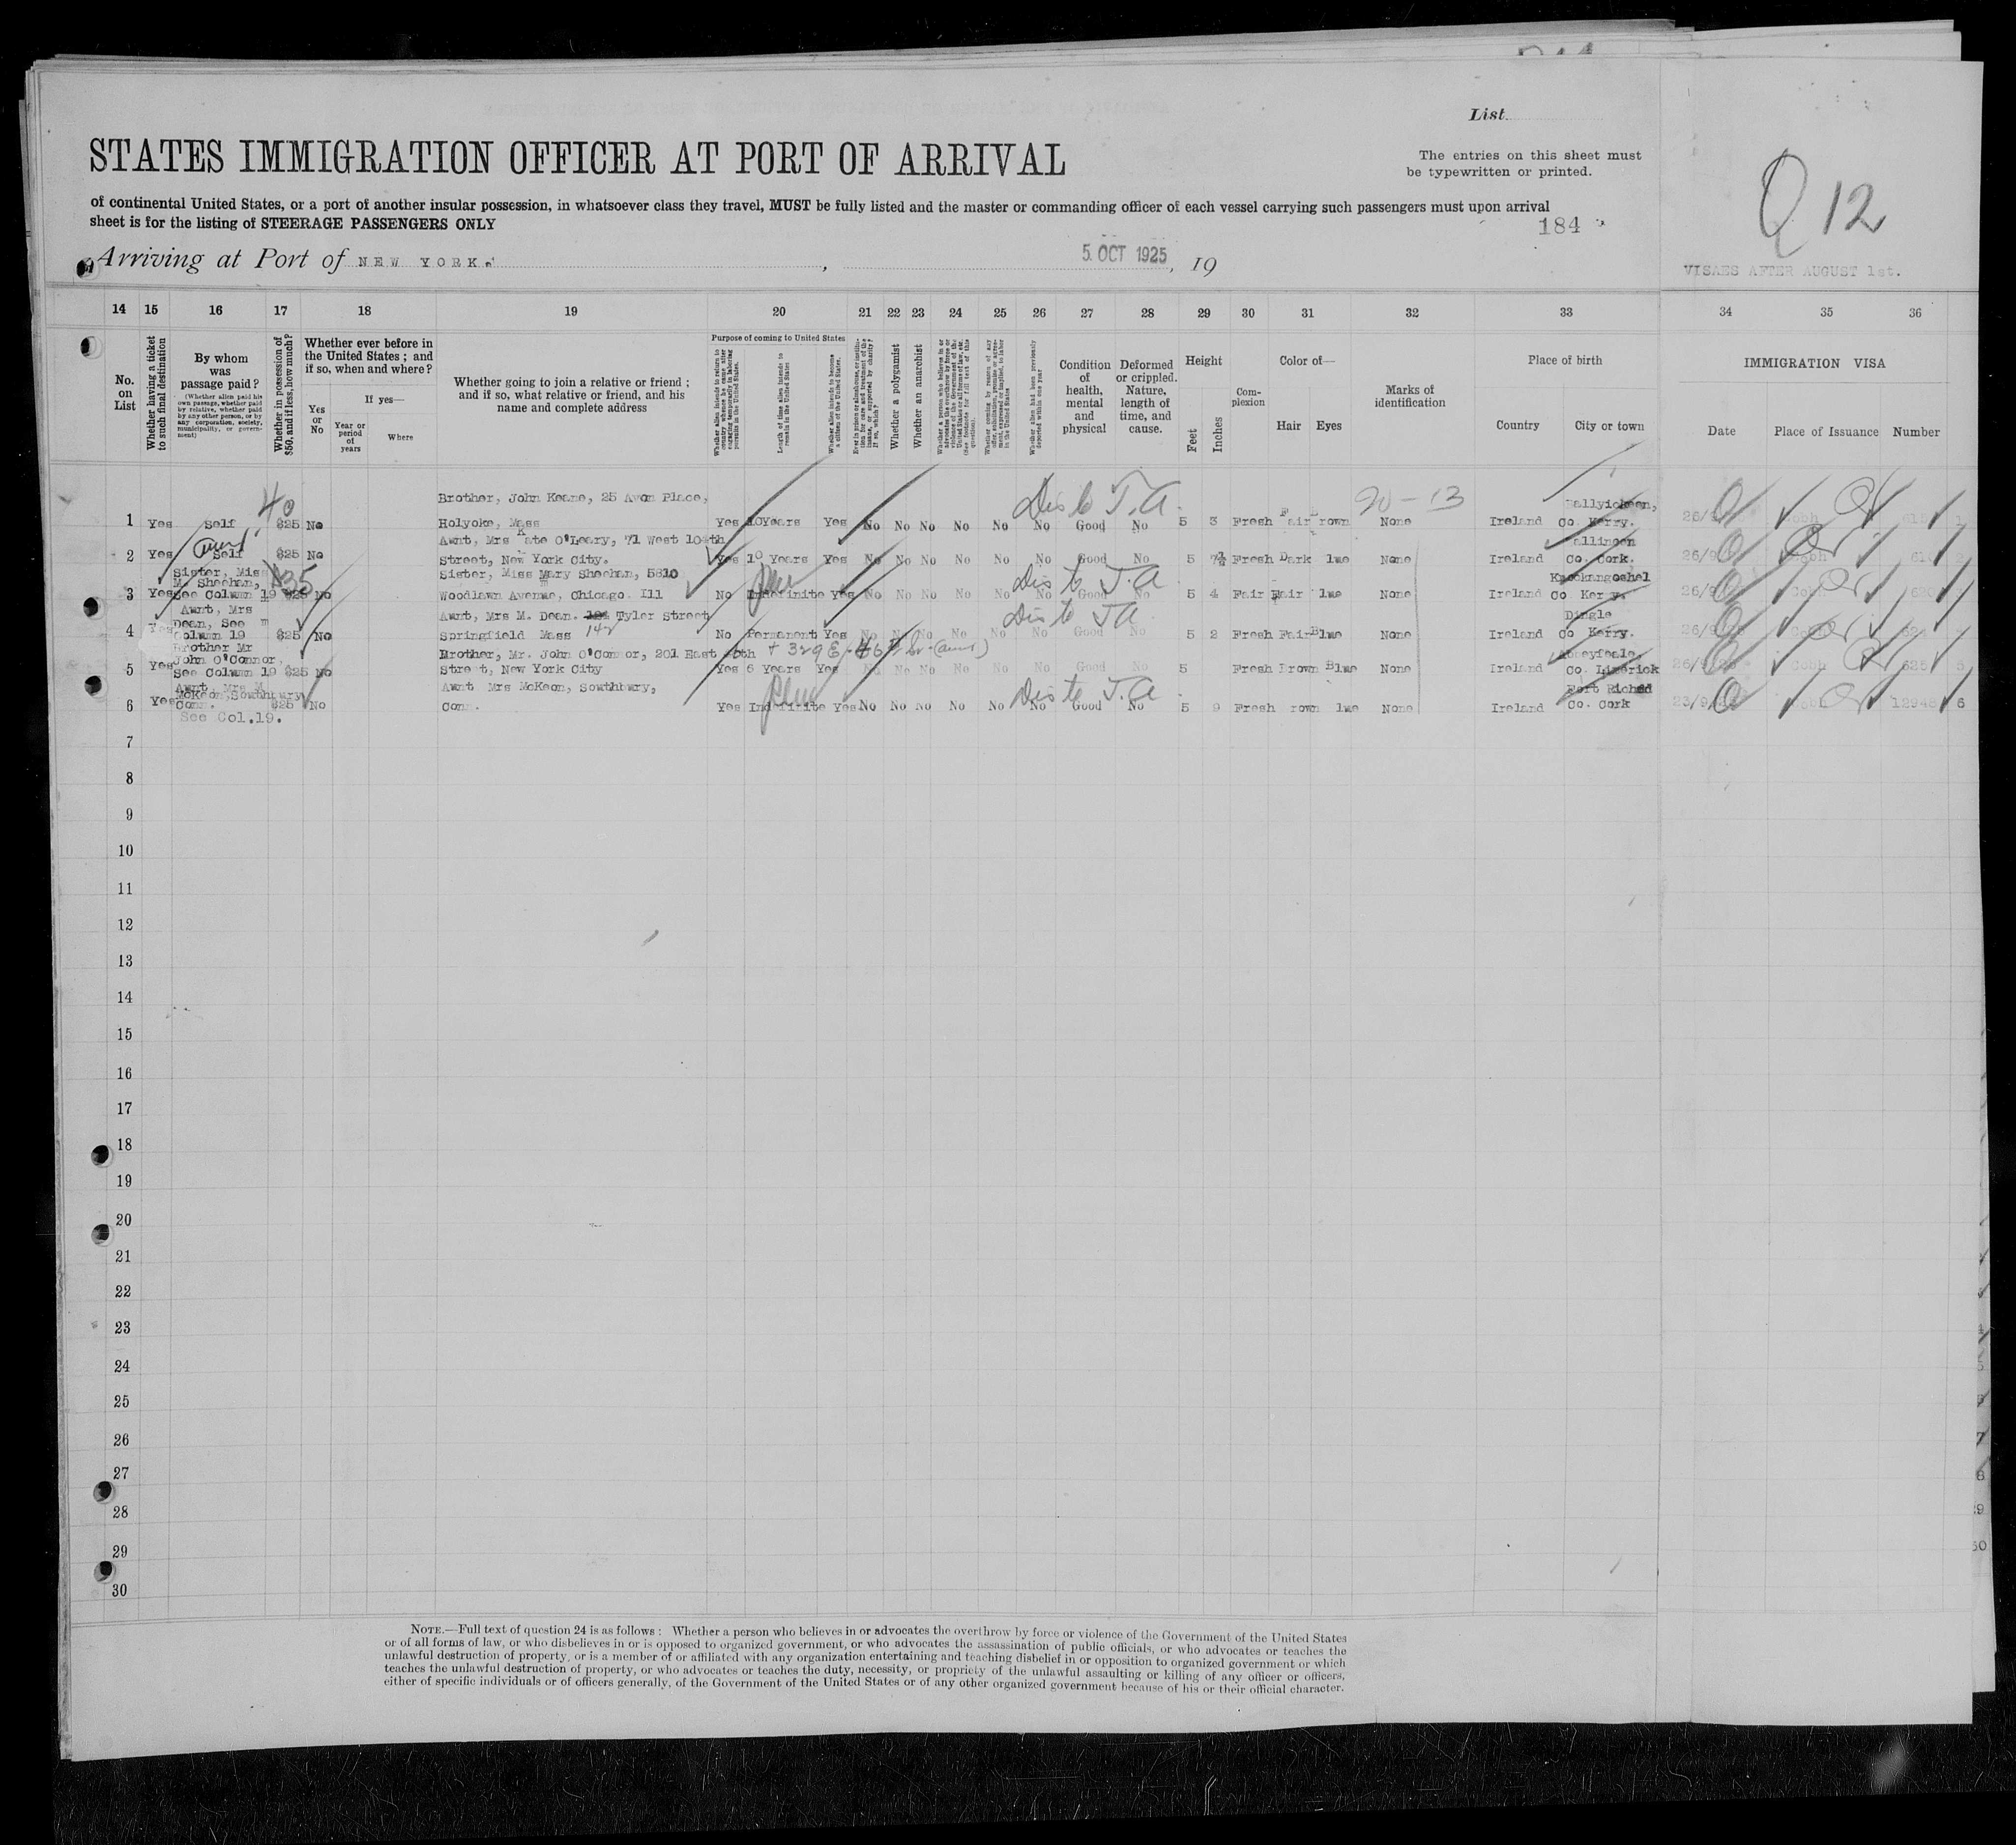 List
STATES IMMIGRATION OFFICER AT PORT OF ARRIVAL
The entries on this sheet must
be typewritten or printed.
of continental United States, or a port of another insular possession, in whatsoever class they travel, MUST be fully listed and the master or commanding officer of each vessel carrying such passengers must upon arrival
sheet is for the listing of STEERAGE PASSENGERS ONLY
184
Q 12
Arriving at Port of NEW YORK. , 5 OCT 1925, 19
VISAES AFTER AUGUST 1st.
14 15 16 17 18 19 20 21 22 23 24 25 26 27 28 29 30 31 32 33 34 35 36
No. on List
Whether having a ticket to such final destination
By whom was passage paid?
(Whether alien paid his own passage, whether paid by relative, whether paid by any other person, or by any corporation, society, municipality, or government)
Whether in possession of $50, and if less, how much?
Whether ever before in the United States; and if so, when and where?
Yes or No
If yes—
Year or period of years
Where
Whether going to join a relative or friend; and if so, what relative or friend, and his name and complete address
Purpose of coming to United States
Length of time alien intends to remain in the United States
Whether alien intends to become a citizen of the United States.
Whether a polygamist
Whether an anarchist
Condition of health, mental and physical
Deformed or crippled. Nature, length of time, and cause.
Height
Feet
Inches
Complexion
Color of—
Hair Eyes
Marks of identification
Place of birth
Country City or town
IMMIGRATION VISA
Date Place of Issuance Number
40 Brother, John Keane, 25 Avon Place, Dis to T.A. 20-13 Ballyickeen,
1 Yes Self $25 No Holyoke, Mass Yes 10Years Yes No No No No No No Good No 5 3 Fresh Fair Brown None Ireland Co. Kerry.
Aunt Aunt, Mrs Kate O'Leary, 71 West 104th
2 Yes Self $25 No Street, New York City. Yes 10 Years Yes No No No No No No Good No 5 Fresh Dark lue None Ireland Co. Cork.
Sister, Miss M. Sheehan, $35 Sister, Miss Mary Sheehan, 5810 Dis to T.A. Knockangoshel
3 Yes See Column 19 $25 No Woodlawn Avenue, Chicago. Ill No Indefinite Yes No No No No No No Good No 5 4 Fair Fair lue None Ireland Co Kerry.
Aunt, Mrs Dean, See Aunt, Mrs M. Dean. Tyler Street Dis to TA Dingle
4 Yes Column 19 $25 No Springfield Mass No Permanent Yes No No No No No No Good No 5 2 Fresh Fair Blue None Ireland Co Kerry.
Brother Mr John O'Connor, Brother, Mr. John O'Connor, 201 East (aunt) Abbeyfeale,
5 Yes See Column 19 $25 No Street, New York City Yes 6 Years Yes No No No No No No Good No 5 Fresh Brown Blue None Ireland Co. Limerick
Aunt, Mrs M McKeon, Southbury Aunt Mrs McKeon, Southbury, Dis to T.A.
6 Yes Conn. $25 No Conn. Yes Indefinite Yes No No No No No No Good No 5 9 Fresh rown lue None Ireland Co. Cork 6
See Col.19.
7
8
9
10
11
12
13
14
15
16
17
18
19
20
21
22
23
24
25
26
27
28
29
30
NOTE.—Full text of question 24 is as follows: Whether a person who believes in or advocates the overthrow by force or violence of the Government of the United States
or of all forms of law, or who disbelieves in or is opposed to organized government, or who advocates the assassination of public officials, or who advocates or teaches the
unlawful destruction of property, or is a member of or affiliated with any organization entertaining and teaching disbelief in or opposition to organized government or which
teaches the unlawful destruction of property, or who advocates or teaches the duty, necessity, or propriety of the unlawful assaulting or killing of any officer or officers,
either of specific individuals or of officers generally, of the Government of the United States or of any other organized government because of his or their official character.